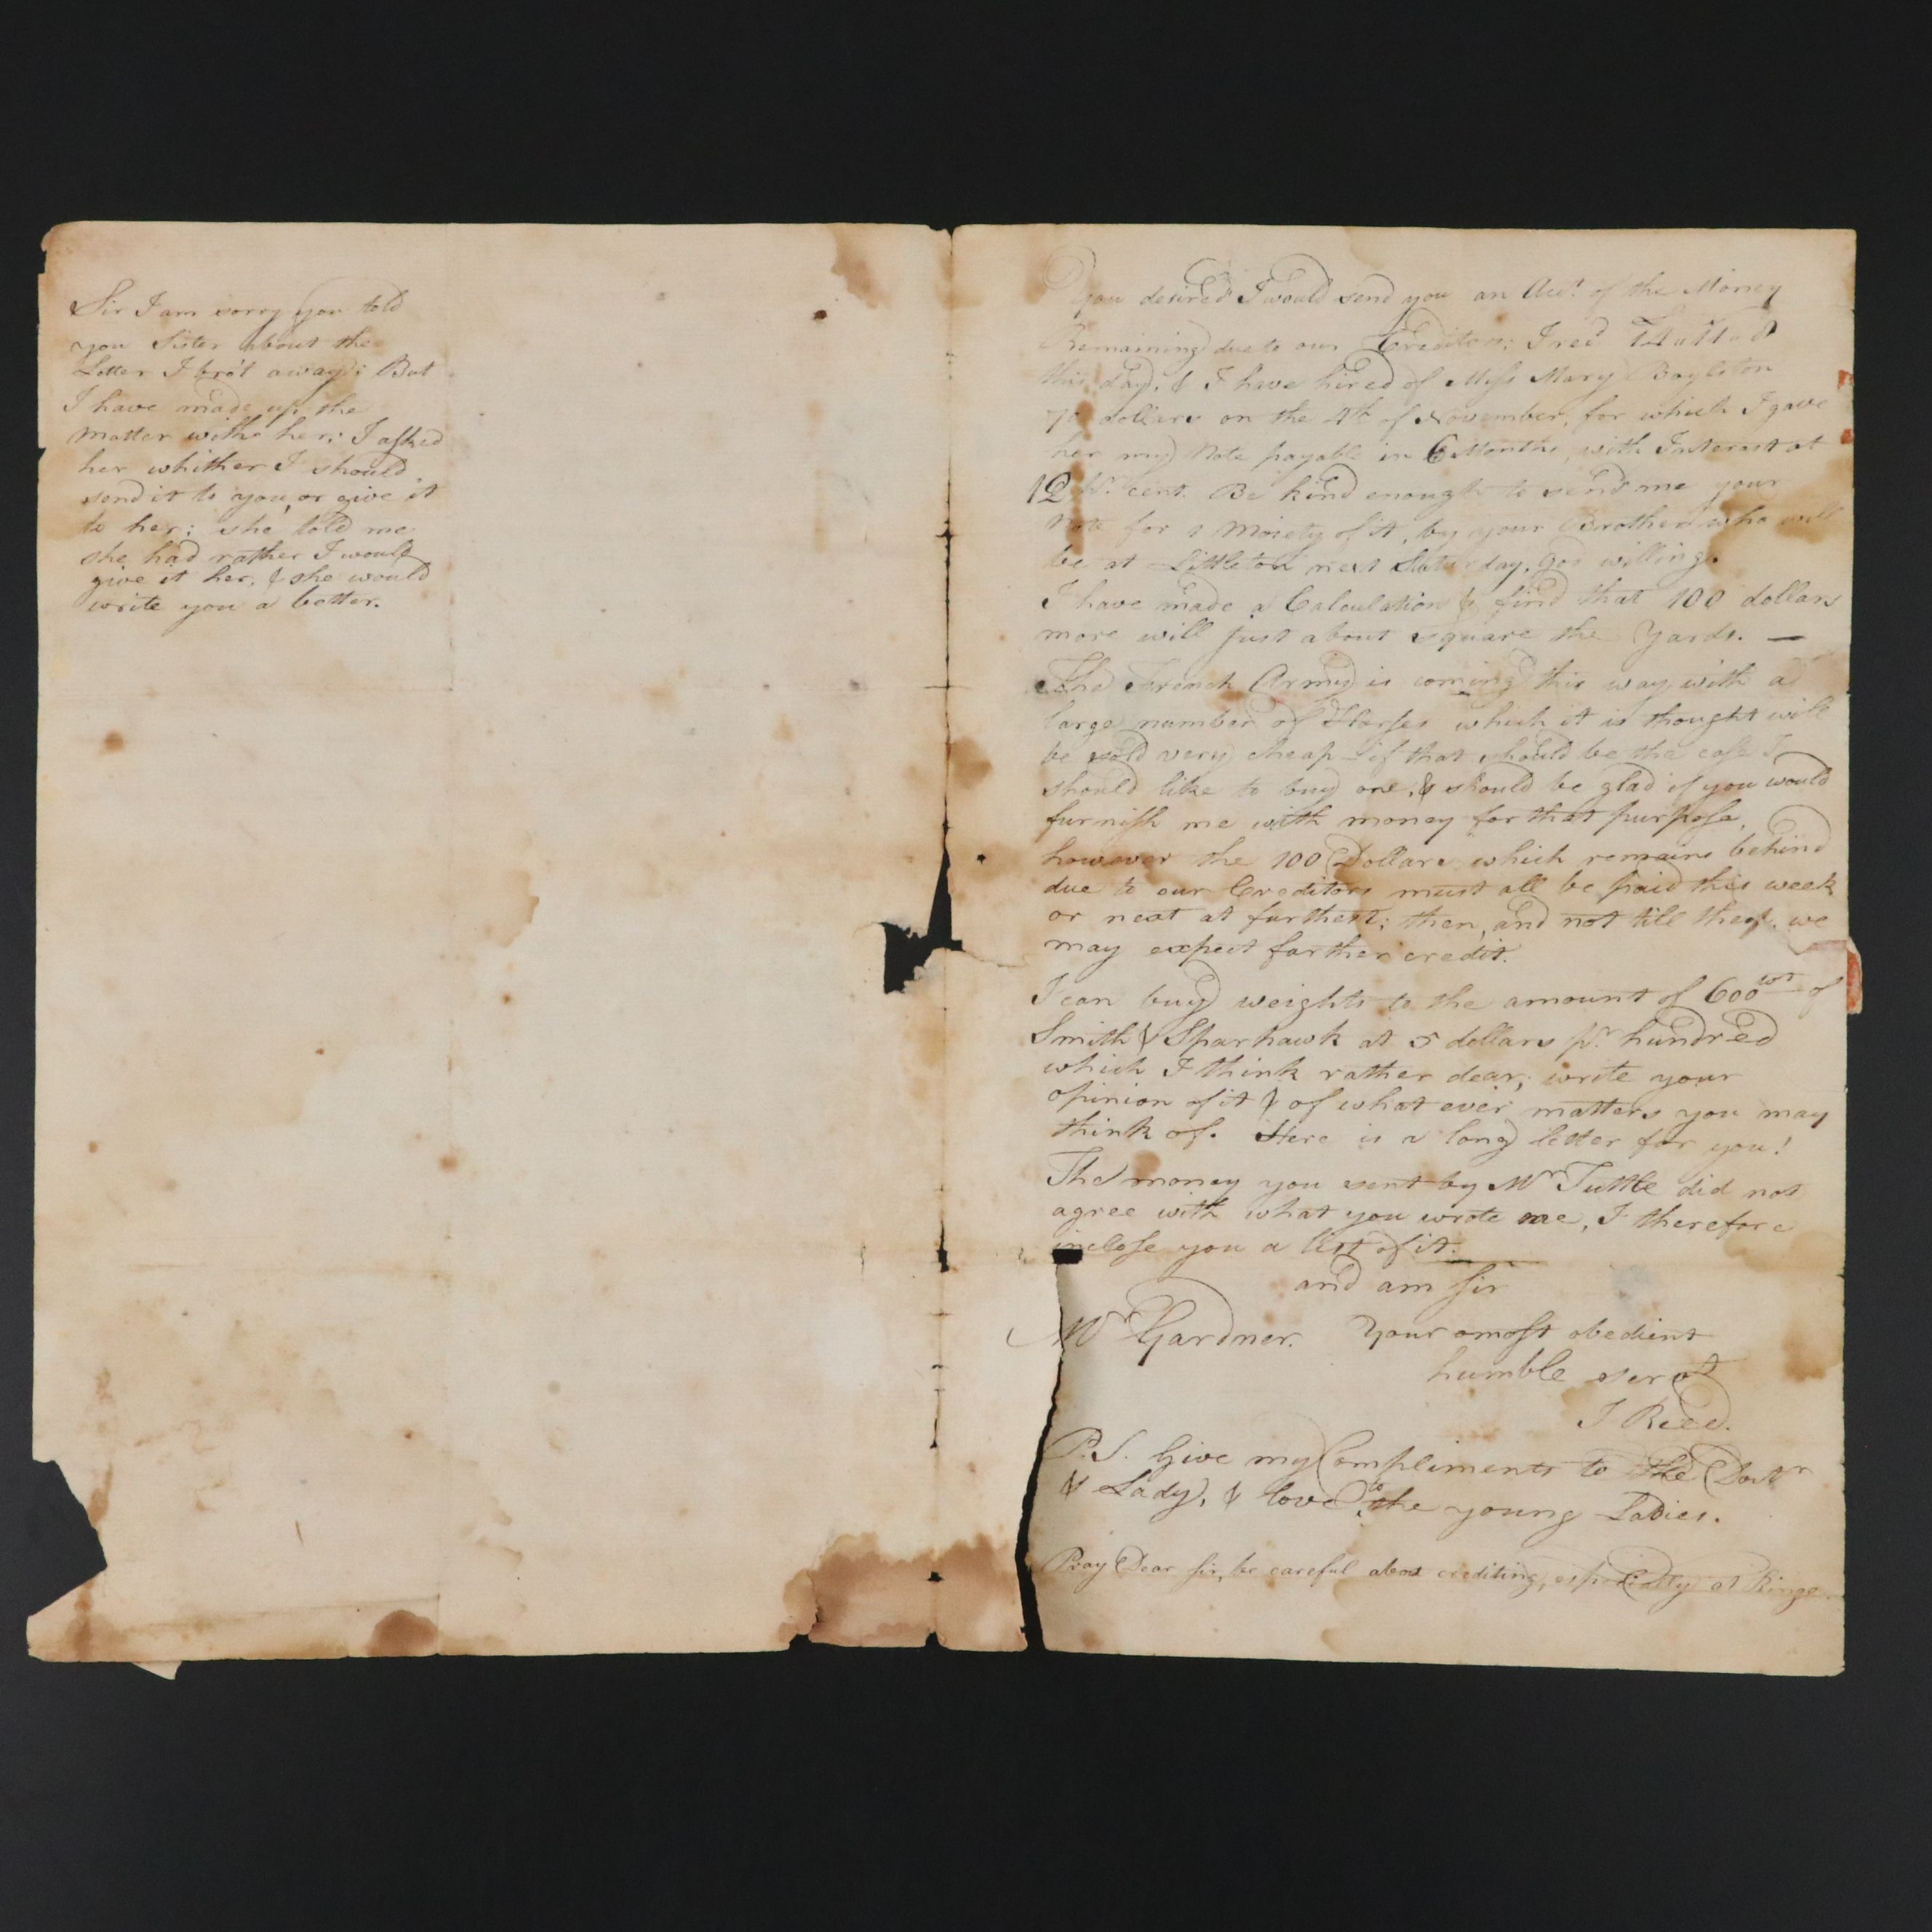 Sir I am sorry you told
you Sister about the
Letter I bro't away; But
I have made up the
matter with her; I asked
her whither I should
send it to you, or give it
to her; she told me
she had rather I would
give it her, & she would
write you a better.
You desired I would send you an Acct. of the Money
Remaining due to our Creditors; I rec'd
this day, & I have hired of Miss Mary Boylston
dollars on the 4th of November, for which I gave
her my Note payable in 6 Months, with Interest at
12 pr. cent. Be kind enough to send me your
Note for a Moiety of it, by your Brother who will
be at Littleton next Saturday, god willing.
I have made a Calculation & find that 100 dollars
more will just about square the Yards. —
The French Army is coming this way with a
large number of Horses which it is thought will
be sold very cheap - if that should be the case I
should like to buy one, & should be glad if you would
furnish me with money for that purpose,
however the 100 Dollars which remains behind
due to our Creditors must all be paid this week
or next at furthest; then, and not till then, we
may expect farther credit.
I can buy weights to the amount of 600wt of
Smith & Sparhawk at 5 dollars pr. hundred
which I think rather dear; write your
opinion of it & of what ever matters you may
think of. Here is a long letter for you!
The money you sent by Mr Tuttle did not
agree with what you wrote me, I therefore
inclose you a list of it.
and am Sir
Mr Gardner. Your most obedient
humble servt
I Reed.
P.S. Give my Compliments to the Doctr
& Lady, & love to the young Ladies.
Pray Dear Sir, be careful about crediting, especially at Ringe